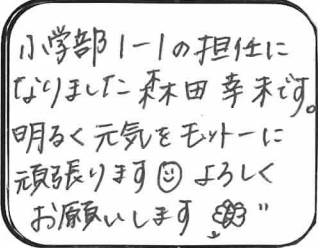 小学部1-1の担任に
なりました森田幸来です。
明るく元気をモットーに
頑張ります☺よろしく
お願いします